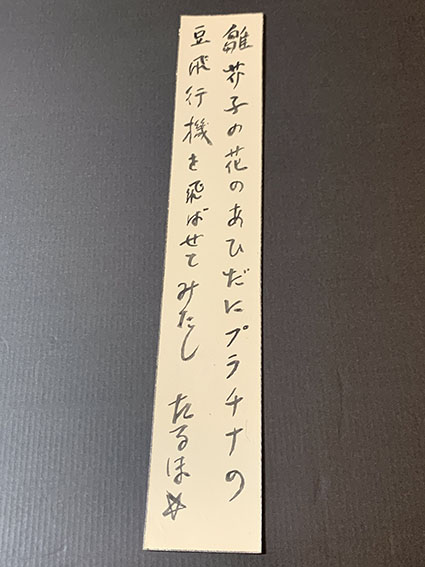 雛芥子の花のあひだにプラチナの
豆飛行機を飛ばせてみたし　たるほ☆